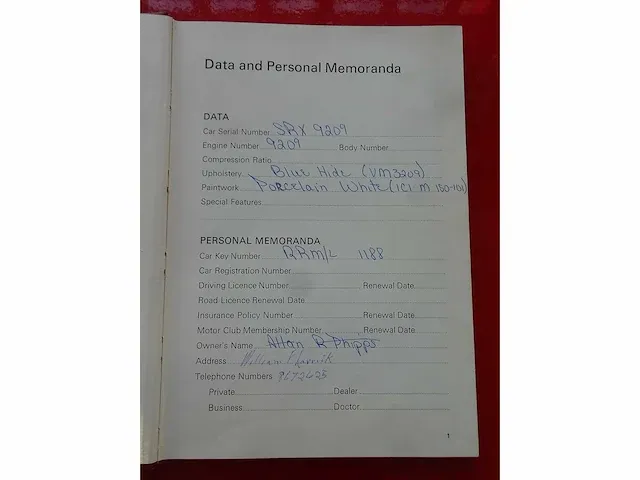 Data and Personal Memoranda
DATA
Car Serial Number SRX 9209
Engine Number 9209 Body Number
Compression Ratio
Upholstery Blue Hide (VM3209)
Paintwork Porcelain White (ICI M 150-101)
Special Features
PERSONAL MEMORANDA
Car Key Number RRM/L 1188
Car Registration Number
Driving Licence Number Renewal Date
Road Licence Renewal Date
Insurance Policy Number Renewal Date
Motor Club Membership Number Renewal Date
Owner's Name Allan R Phipps
Address William
Telephone Numbers 9672423
Private Dealer
Business Doctor
1